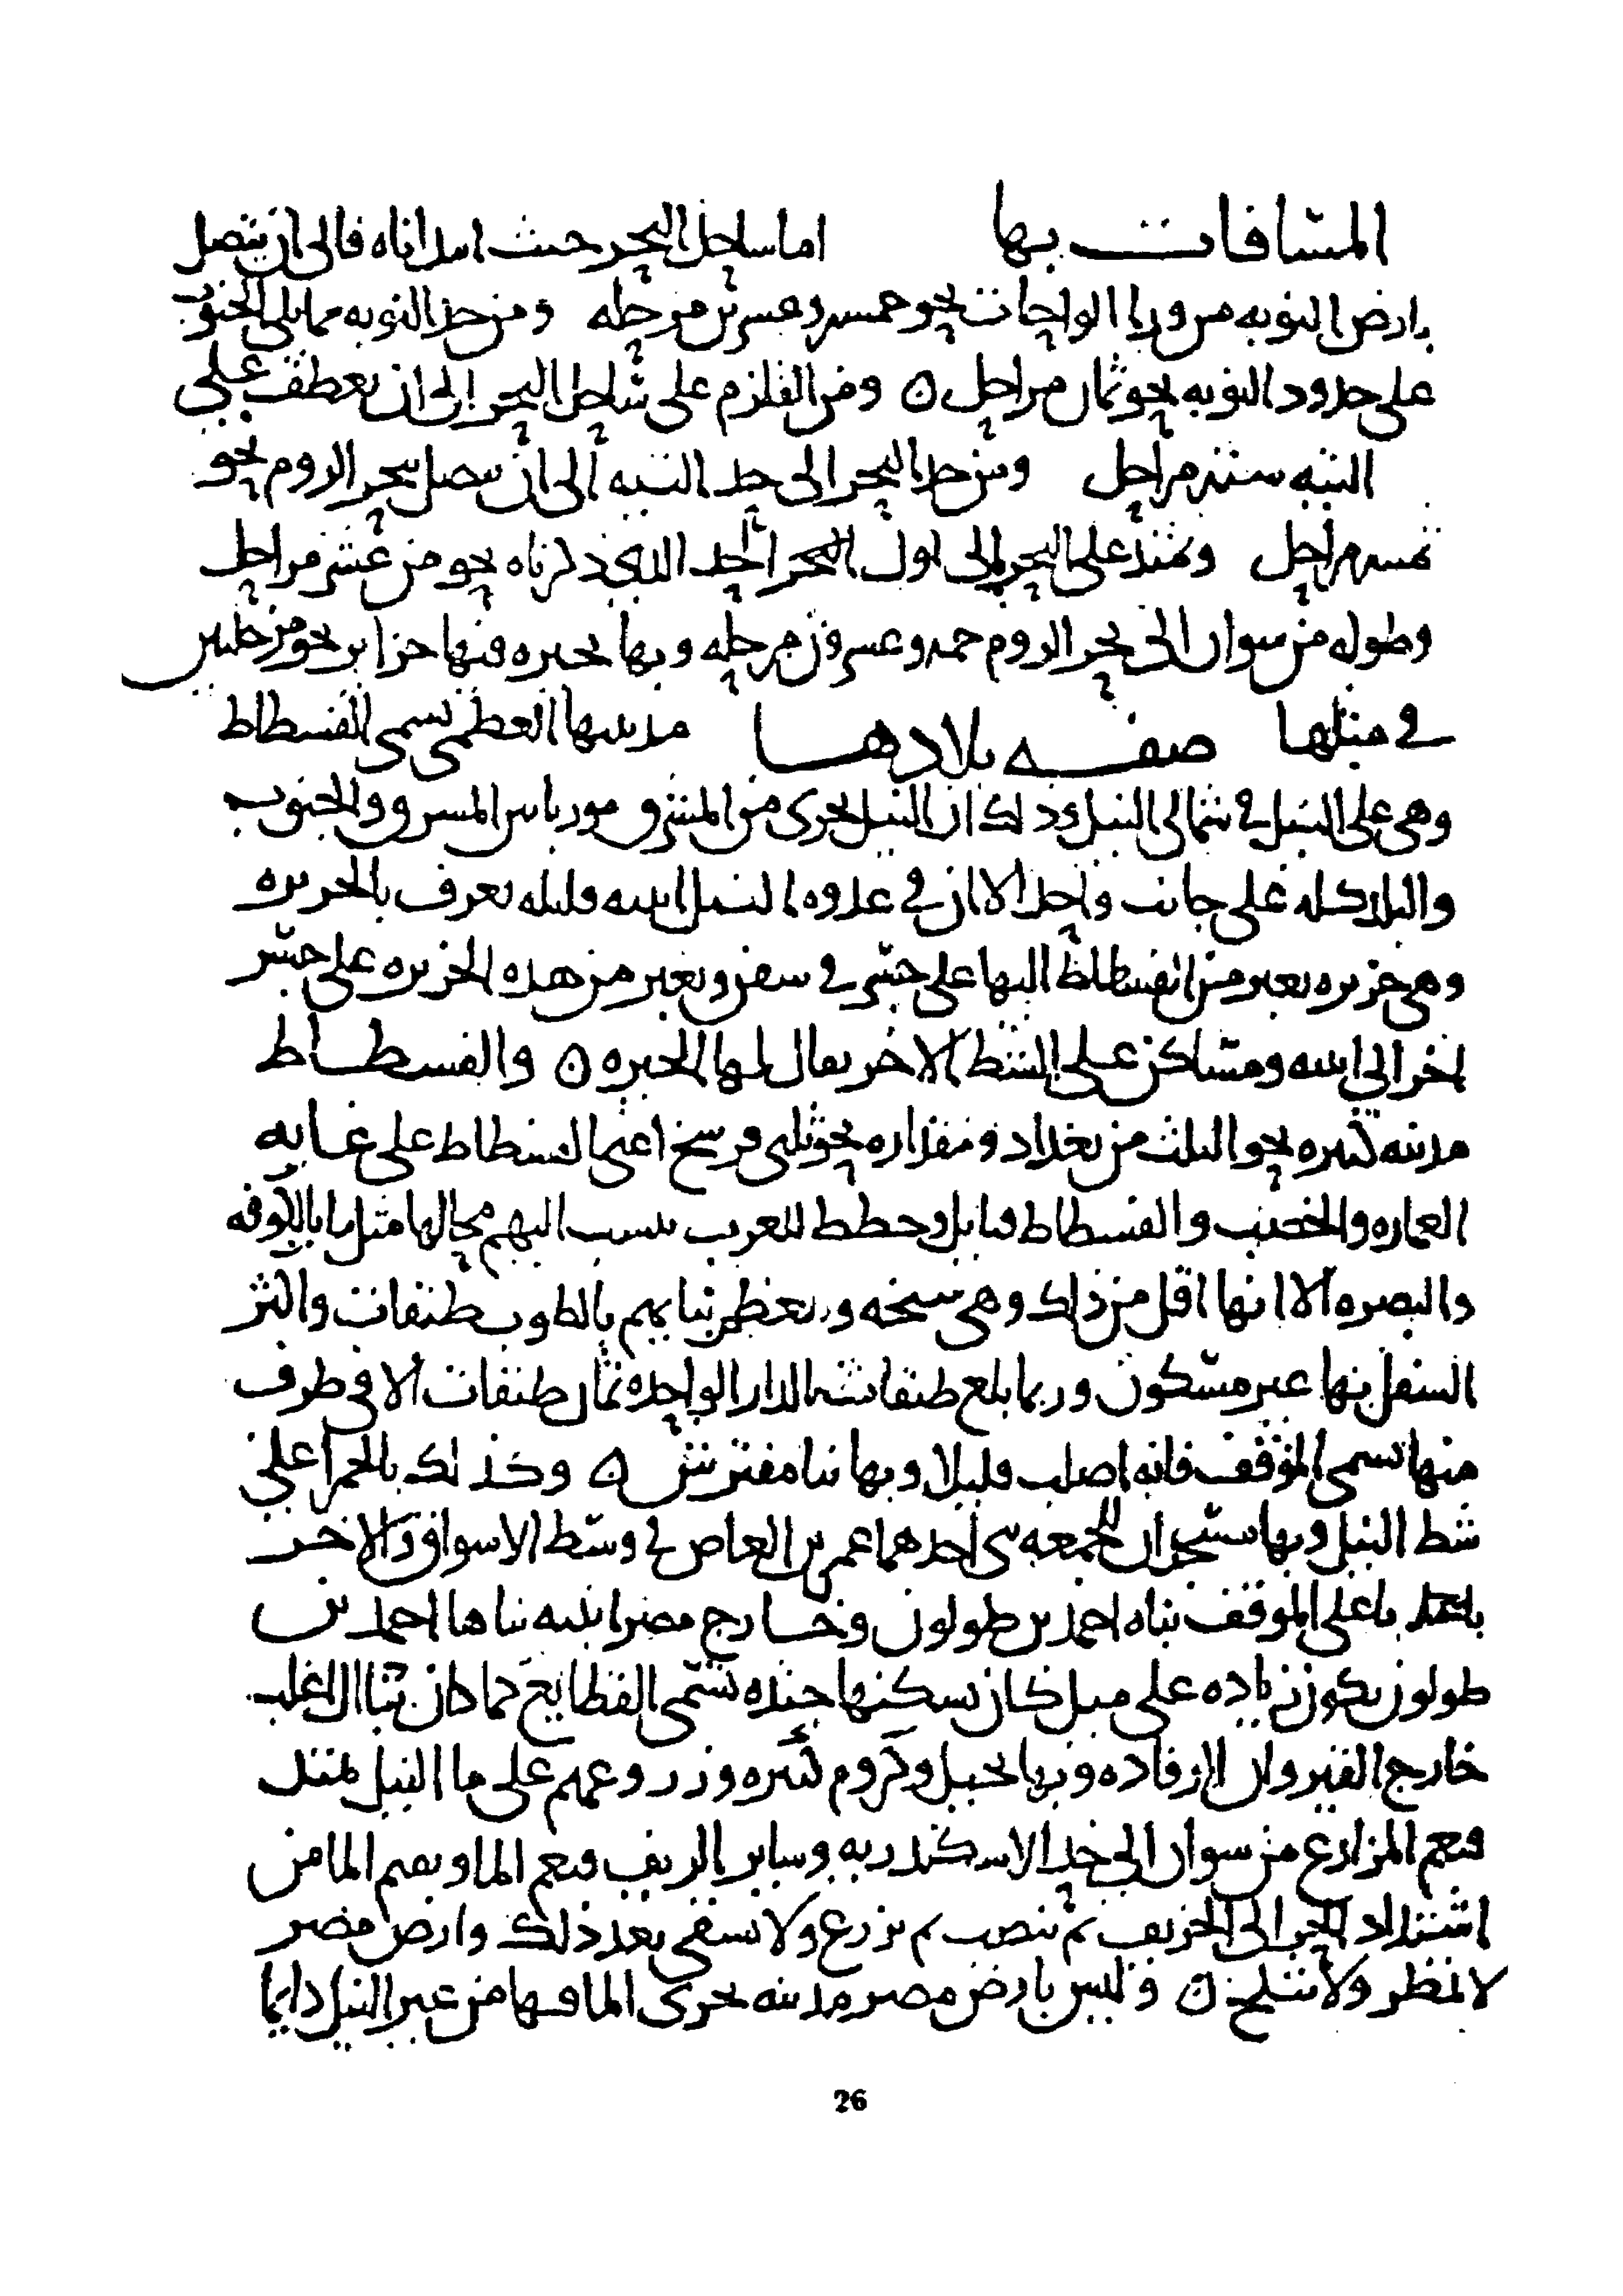 المسافات بها اما ساحل البحر حيث ابتداناه فالى ان يتصل
بارض النوبه من ورا الواحات نحو خمسه وعشرين مرحله ومن حد النوبه مما يلي الجنوب
على حدود النوبه نحو ثمان مراحل ن ومن القلزم على ساحل البحر الى ان يعطف على
التيه سته مراحل ومن حد البحر الى حد التيه الى ان يتصل ببحر الروم نحو
مراحل ويمتد على البحر الى اول الحد الذي ذكرناه نحو من عشر مراحل
وطوله من سوان الى بحر الروم خمسه وعشرون مرحله وبها بحيره فيها جزاير نحو مرحلتين
في مثلها صفه بلادها مدينتها العظمى تسمى الفسطاط
وهي على النيل في شمالي النيل وذلك ان النيل يجرى من المشرق موربا بين المشرق والجنوب
والبلد كله على جانب واحد الا ان في عدوه النيل ابنيه قليله تعرف بالجزيره
وهي جزيره يعبر من الفسطاط اليها على جسر في سفن ويعبر من هذه الجزيره على جسر
اخر الى ابنيه ومساكن على الشط الاخر يقال لها الجيزه ن والفسطاط
مدينه كبيره نحو الثلث من بغداد ومقداره نحو ثلثي فرسخ اعني الفسطاط على غايه
العماره والخصب والفسطاط قبايل وخطط للعرب ينسب اليهم محالها مثل ما بالكوفه
والبصره الا انها اقل من ذلك وهي سبخه ومعظم بنايهم بالطوب طبقات واكثر
السفل بها غير مسكون وربما بلغ طبقات الدار الواحده ثمان طبقات الا في طرف
منها تسمى الموقف فانه اصلب قليلا وبها بنا مفترش ن وكذلك بالحمرا على
شط النيل وبها مسجدان للجمعه بنى احدهما عمر بن العاص في وسط الاسواق والاخر
باعلى الموقف بناه احمد بن طولون وخارج مصر ابنيه بناها احمد بن
طولون يكون زياده على ميل كان يسكنها جنده تسمى القطايع كما كان بنا ال الاغلب
خارج القيروان الرقاده وبها نخيل وكروم كثيره وزروعهم على ما النيل يمتد
فيعم المزارع من سوان الى حد الاسكندريه وساير الريف فيعم الما ويقيم الما من
اشتداد الحر الى الخريف ثم ينصب ثم يزرع ولا يسقى بعد ذلك وارض مصر
لا تمطر ولا تثلج ن وليس بارض مصر مدينه يجرى الما فيها من غير النيل دايما
26